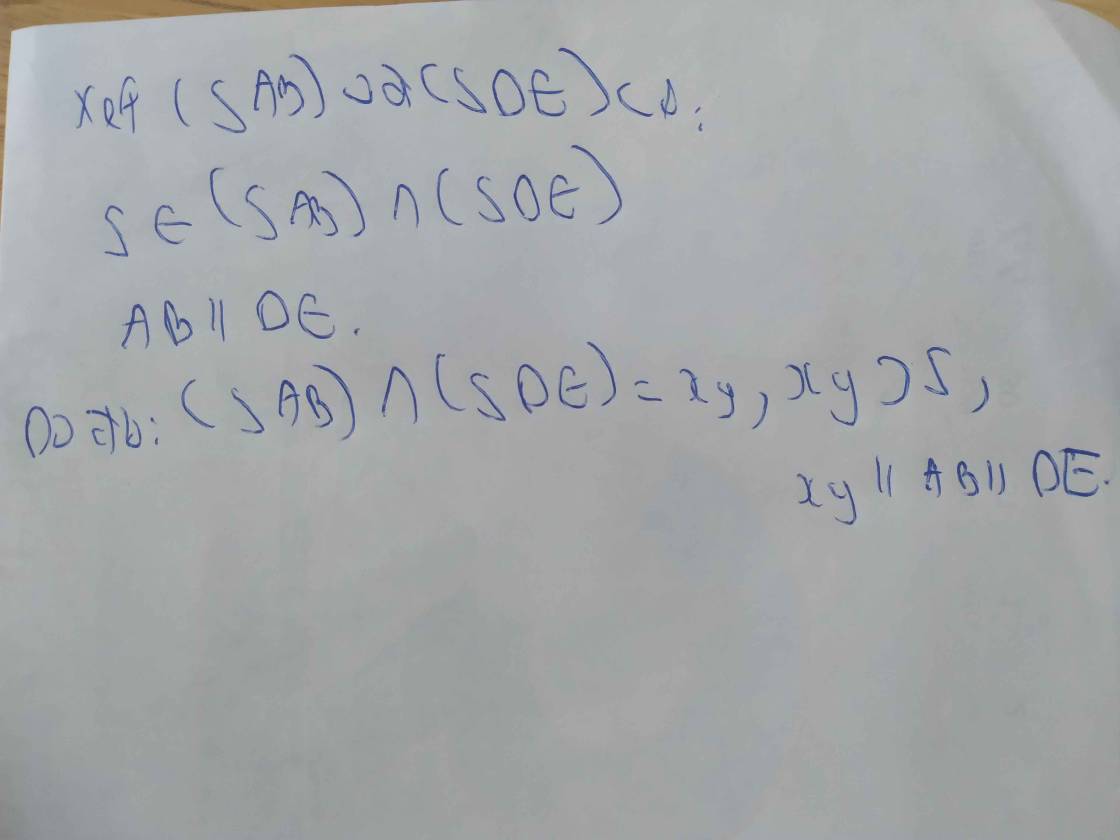 Xét (SAB) và (SDE) có:
S ∈ (SAB) ∩ (SDE)
AB // DE.
Do đó: (SAB) ∩ (SDE) = xy, xy ⊃ S,
xy // AB // DE.